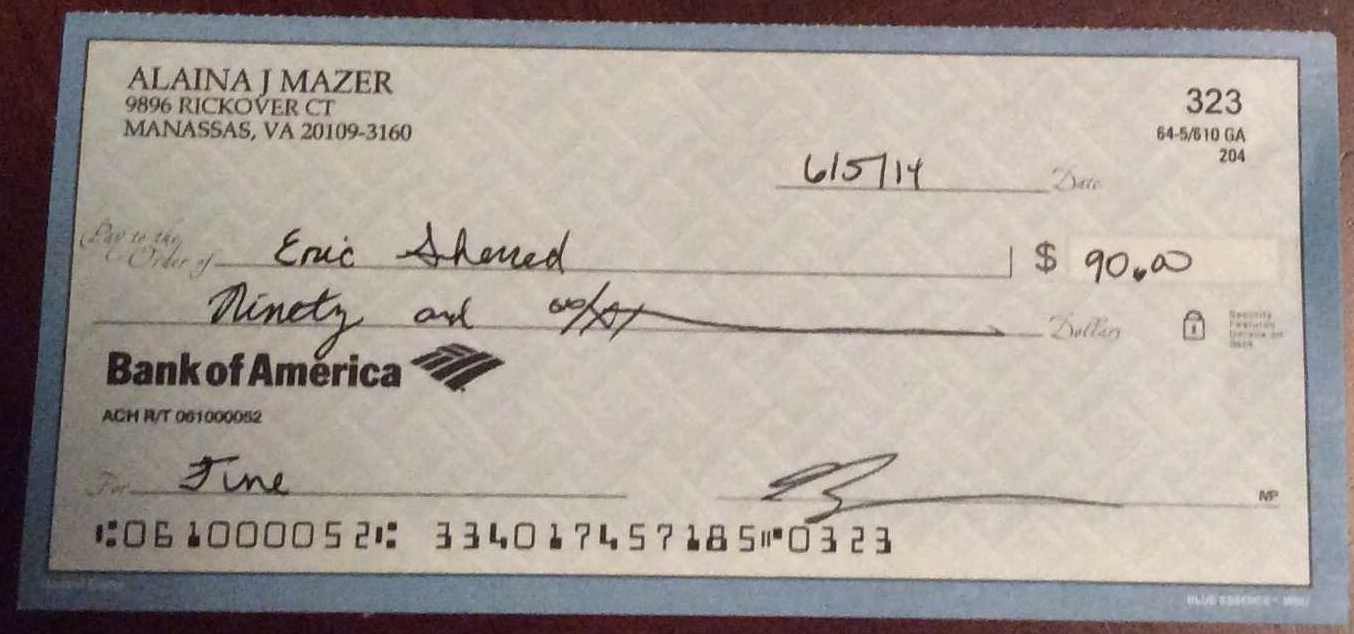 ALAINA J MAZER
9896 RICKOVER CT
MANASSAS, VA 20109-3160
323
64-5/610 GA
204
6/5/14 Date
Pay to the
Order of Eric $ 90.00
Ninety and Dollars
Security
Features
Details on
Back
Bank of America
ACH R/T 061000052
For Fine
MP
⑆061000052⑆ 334017457185⑈0323